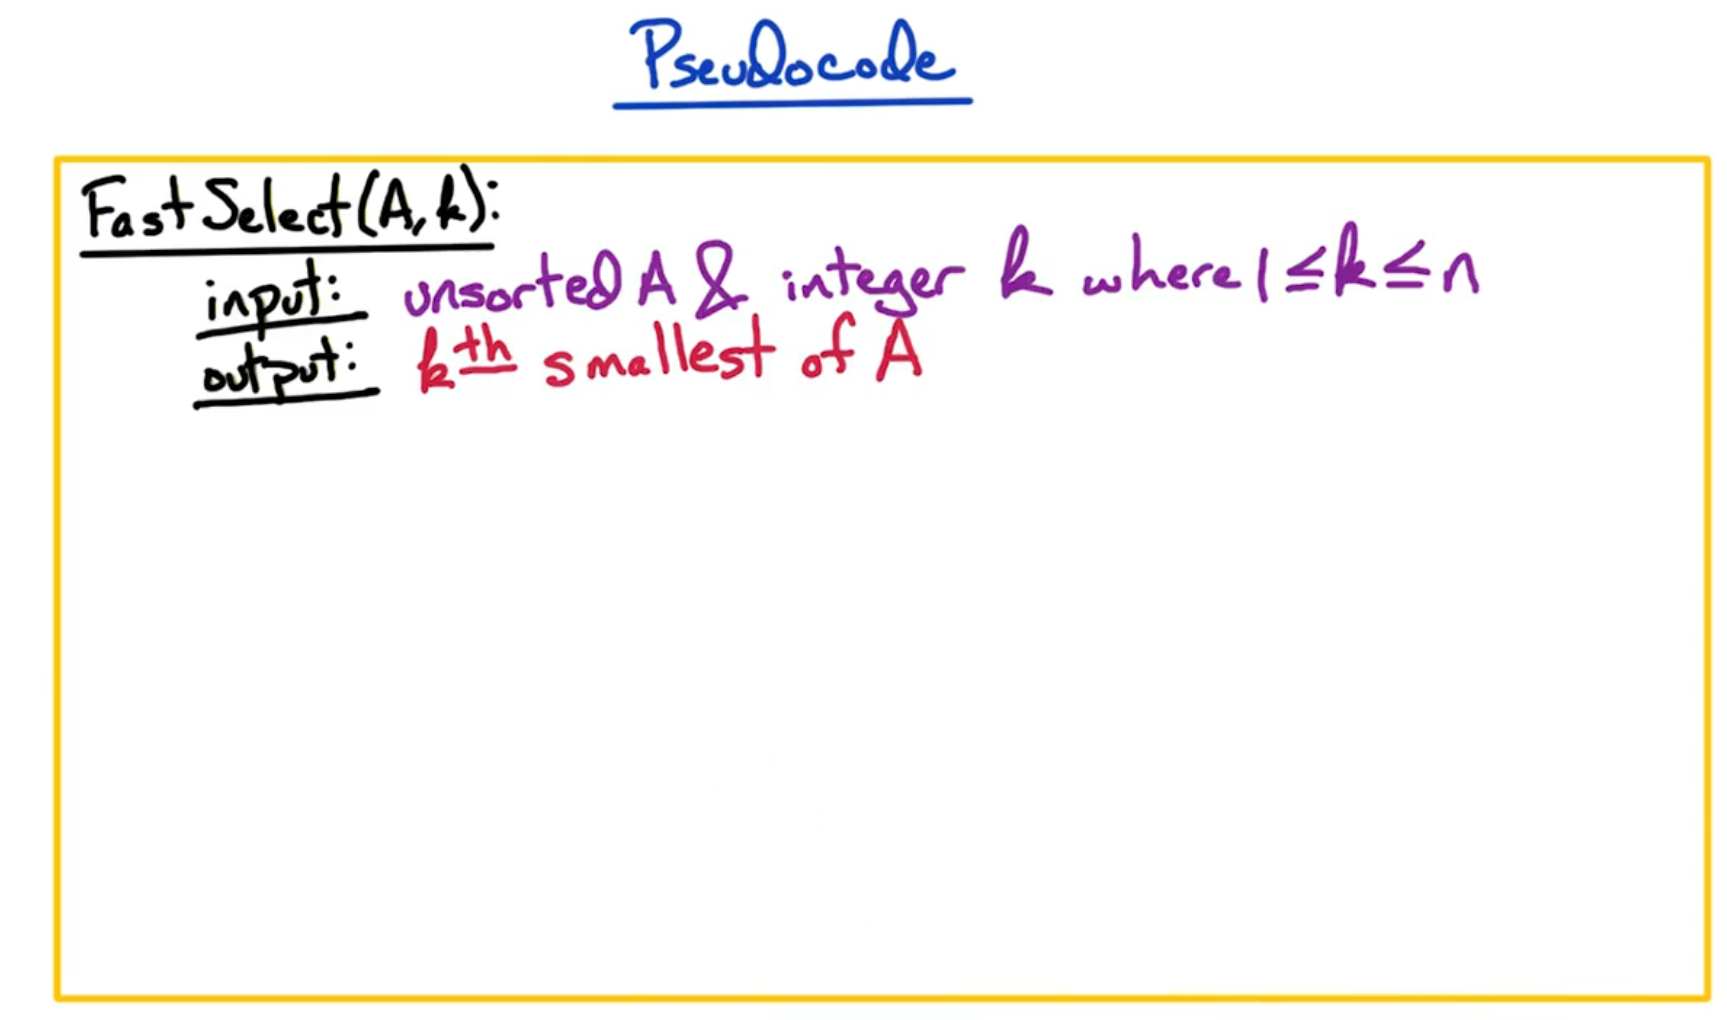 Pseudocode
FastSelect(A,k):
input: unsorted A & integer k where 1≤k≤n
output: kth smallest of A